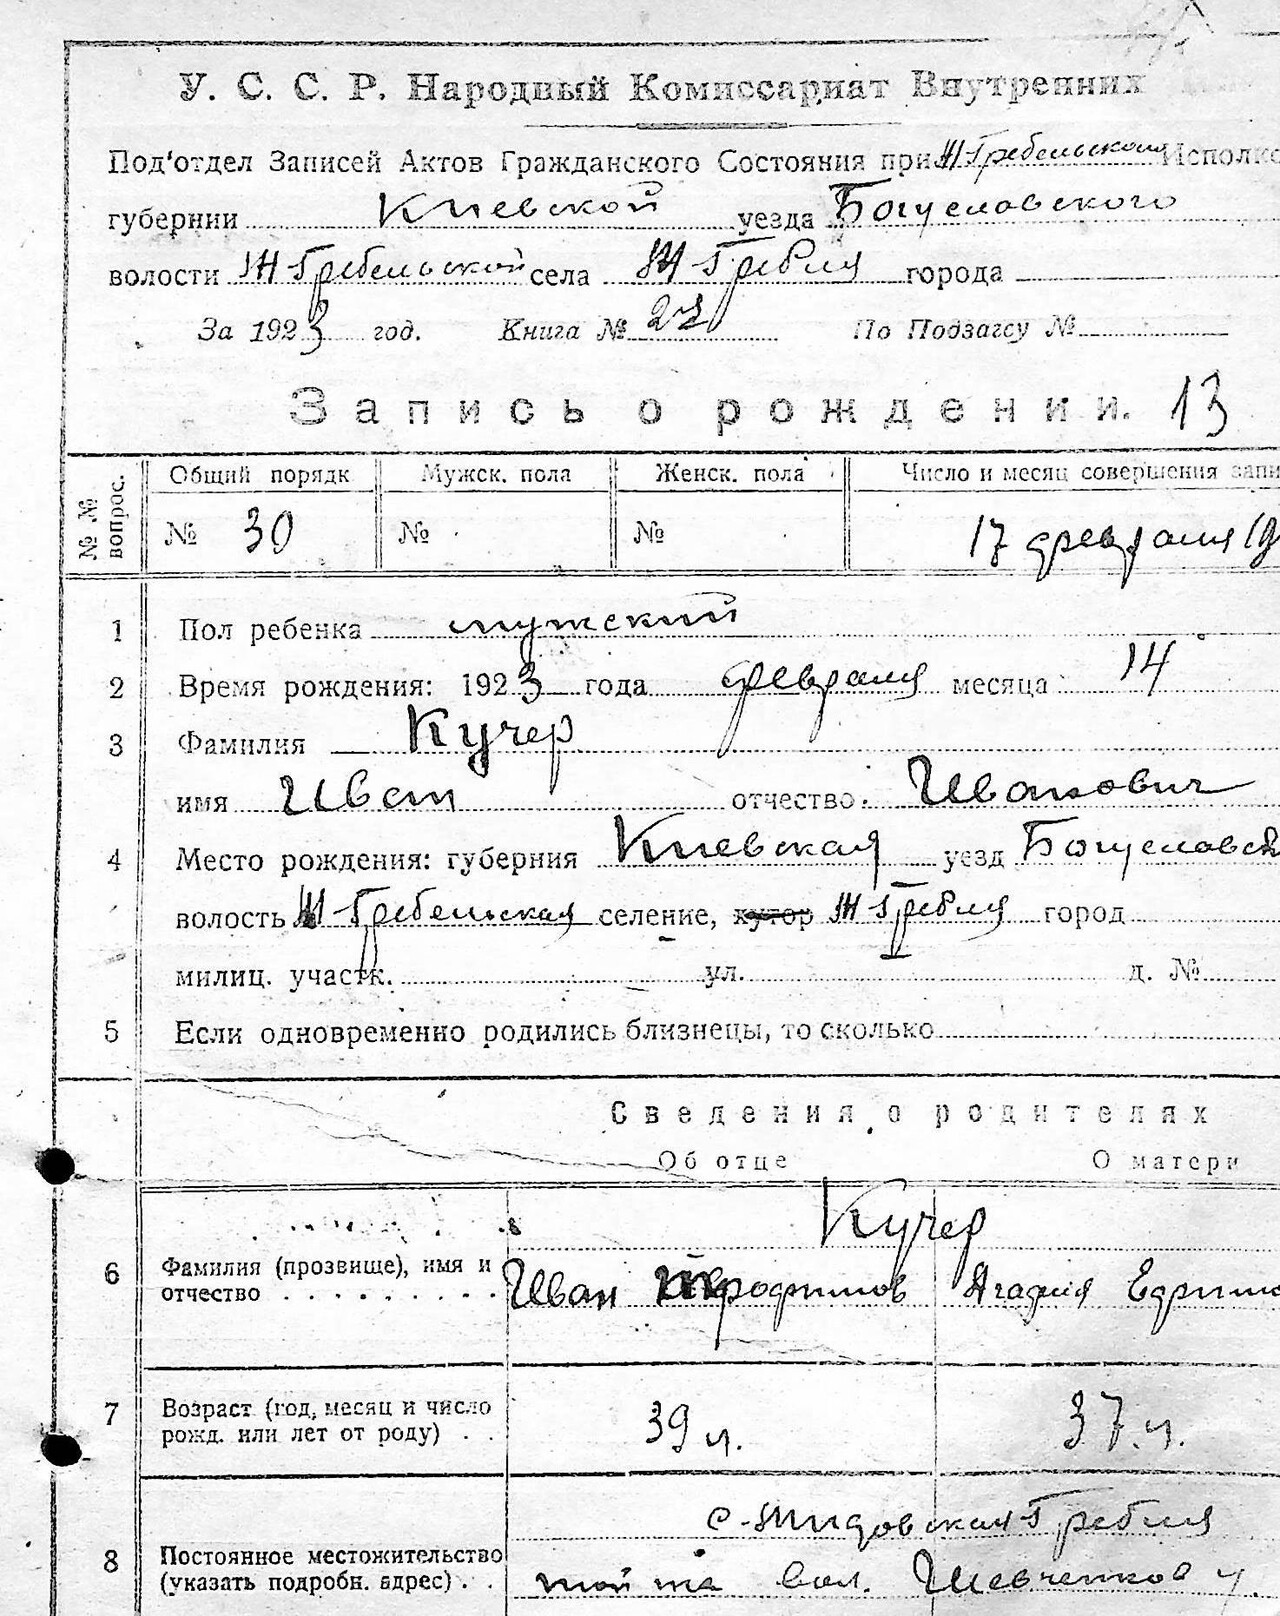 У. С. С. Р. Народный Комиссариат Внутренних
Под'отдел Записей Актов Гражданского Состояния при Ж Гребельском Исполко
губернии Киевской уезда Богуславского
волости Ж Гребельской села Ж Гребля города
За 1923 год. Книга № 27 По Подзагсу №
Запись о рождении. 13
№ № вопрос. Общий порядк Мужск. пола Женск. пола Число и месяц совершения запи
№ 30 № № 17 февраля 19
1 Пол ребенка мужский
2 Время рождения: 1923 года февраля месяца 14
3 Фамилия Кучер
имя Иван отчество. Иванович
4 Место рождения: губерния Киевская уезд Богуславск
волость Ж Гребельская селение, хутор Ж Гребля город
милиц. участк. ул. д. №
5 Если одновременно родились близнецы, то сколько
Сведения о родителях
Об отце О матери
Кучер
6 Фамилия (прозвище), имя и
отчество Иван Трофимов Агафия Ефримо
7 Возраст (год, месяц и число
рожд. или лет от роду) 39 л. 37 л.
с. Жидовская Гребля
8 Постоянное местожительство
(указать подробн. адрес) той же вол. Шевченков у.